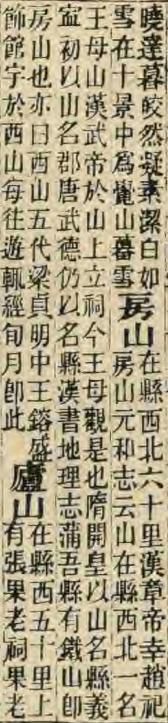 曉達暮皎然凝素潔白如
雪在十景中爲龍山暮雪房山在縣西北六十里漢章帝幸趙祠
房山元和志云山在縣西北一名
王母山漢武帝於山上立祠今王母觀是也隋開皇以山名縣義
寍初以山名郡唐武德仍以名縣漢書地理志蒲吾縣有鐵山卽
房山也亦曰西山五代梁貞明中王鎔盛
飾館宇於西山每往遊輒經旬月卽此廬山在縣西五十里上
有張果老祠果老